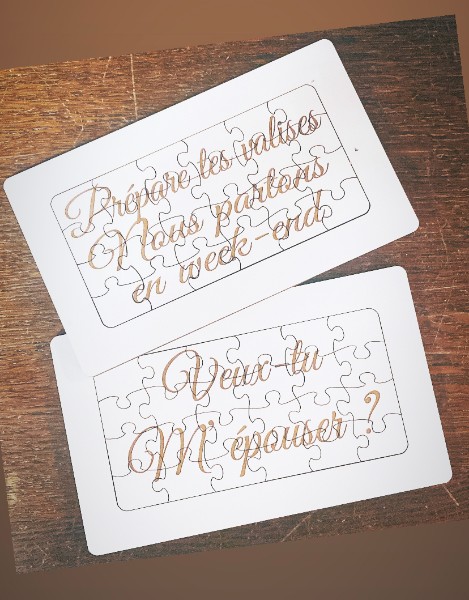 Prépare les valises
Nous partons
en week-end
Veux-tu
M'épouser ?